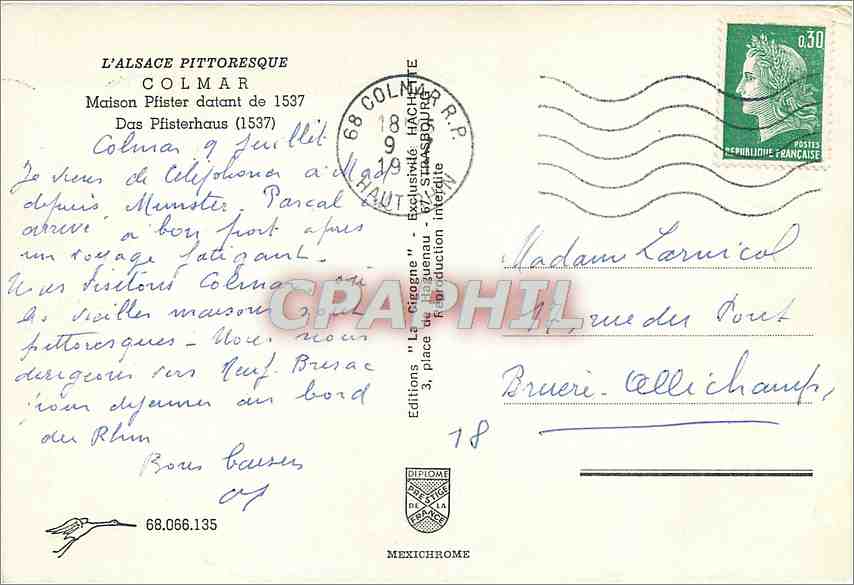 L'ALSACE PITTORESQUE
COLMAR
Maison Pfister datant de 1537
Das Pfisterhaus (1537)
Colmar 9 juillet
Je viens de téléphoner à Mad
depuis Munster. Pascal est
arrivé à bon port après
un voyage fatigant.
Nous visitons Colmar où
les vieilles maisons sont
pittoresques - Nous nous
dirigeons vers Neuf-Brisac
pour déjeuner au bord
du Rhin
Bons baisers
68.066.135
Editions "La Cigogne" - Exclusivité HACHETTE
3, place de Haguenau - 67-STRASBOURG
Reproduction interdite
68 COLMAR R.P.
18
9
19
HAUT RHIN
0,30
POSTES
REPUBLIQUE FRANÇAISE
Madame Larnicol
17, rue du Pont
Bruère-Allichamps,
18
DIPLOME
PRESTIGE
DE LA
FRANCE
MEXICHROME
CPAPHIL